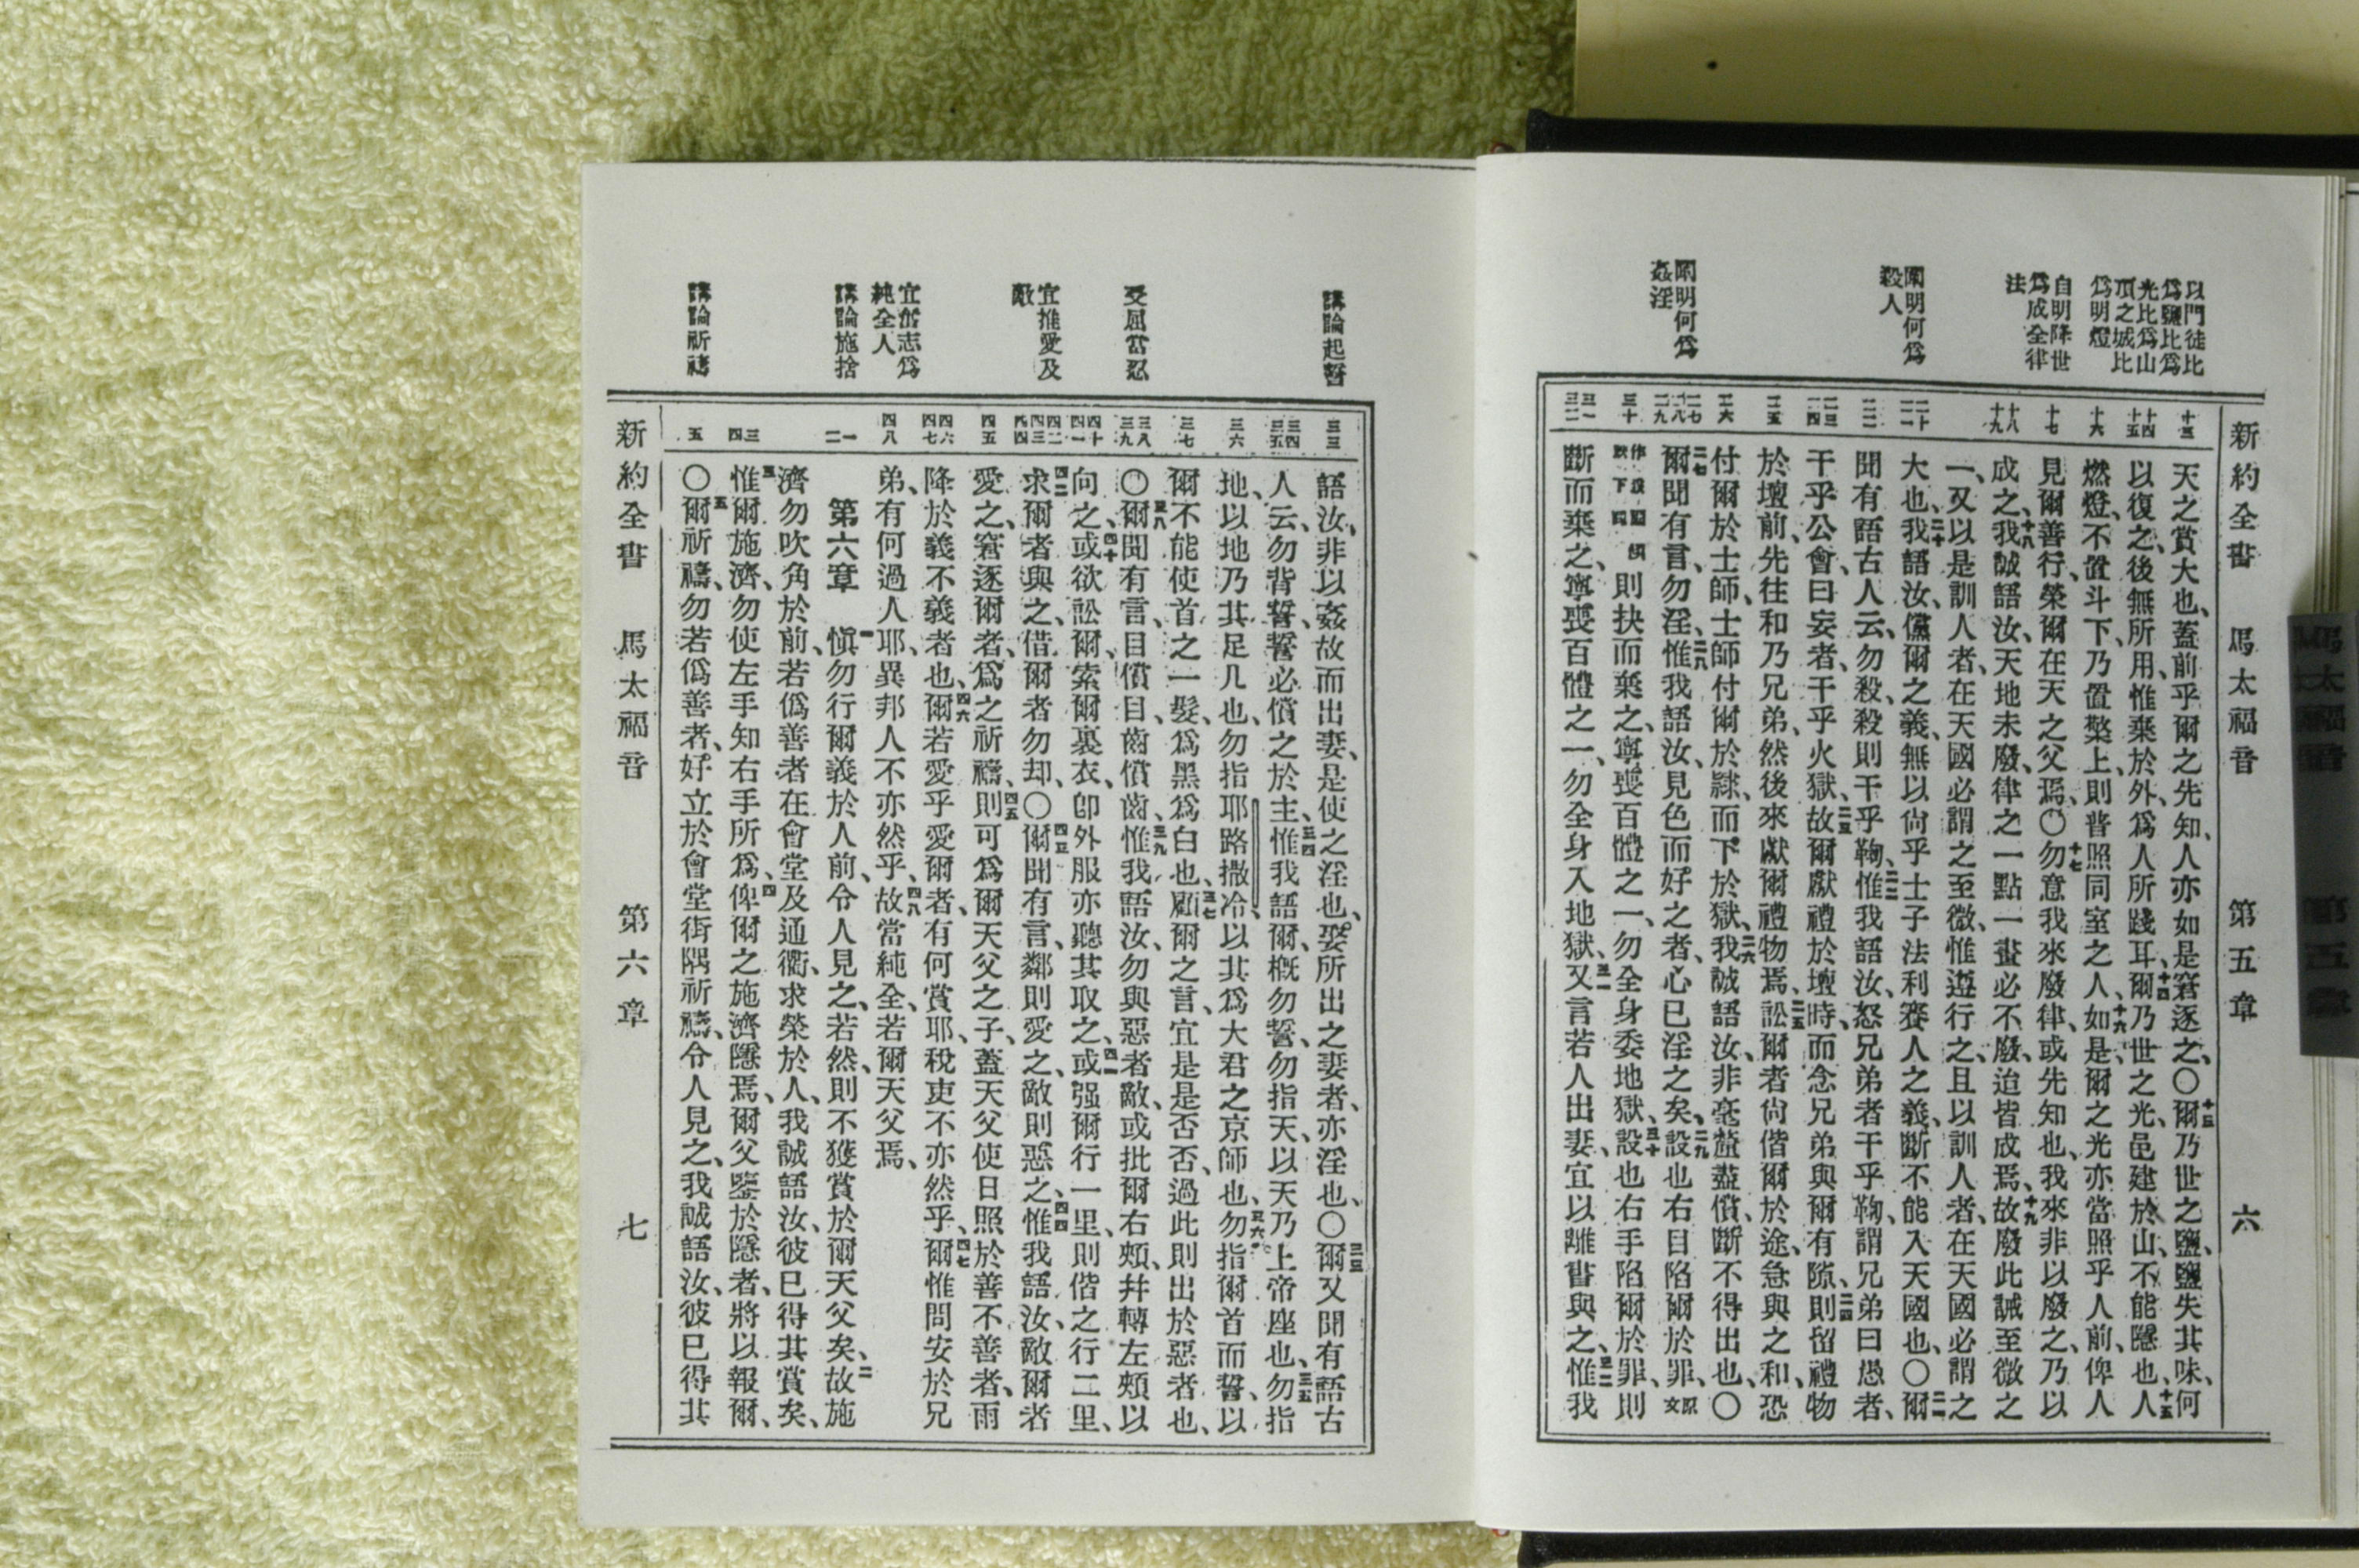 以門徒比
爲鹽比爲
光比爲山
頂之城比
爲明燈
自明降世
爲成全律
法
闡明何爲
殺人
闡明何爲
姦淫
新約全書 馬太福音 第五章 六
十三
十四
十五
十六
十七
十八
十九
二十
二一
二二
二三
二四
二五
二六
二七
二八
二九
三十
三一
三二
天之賞大也、蓋前乎爾之先知、人亦如是窘逐之、〇十三爾乃世之鹽、鹽失其味、何
以復之、後無所用、惟棄於外、爲人所踐耳、十四爾乃世之光、邑建於山、不能隱也、十五人
燃燈、不置斗下、乃置檠上、則普照同室之人、十六如是、爾之光亦當照乎人前、俾人
見爾善行、榮爾在天之父焉、〇十七勿意我來廢律、或先知也、我來非以廢之、乃以
成之、十八我誠語汝、天地未廢、律之一點一畫必不廢、迨皆成焉、十九故廢此誡至微之
一、又以是訓人者、在天國必謂之至微、惟遵行之、且以訓人者、在天國必謂之
大也、二十我語汝、儻爾之義、無以尙乎士子法利賽人之義、斷不能入天國也、〇二一爾
聞有語古人云、勿殺、殺則干乎鞫、二二惟我語汝、怒兄弟者干乎鞫、謂兄弟曰愚者、
干乎公會、曰妄者、干乎火獄、二三故爾獻禮於壇時、而念兄弟與爾有隙、二四則留禮物
於壇前、先往和乃兄弟、然後來獻爾禮物焉、二五訟爾者尙偕爾於途、急與之和、恐
付爾於士師、士師付爾於隸、而下於獄、二六我誠語汝、非毫釐蓋償、斷不得出也、〇
二七爾聞有言、勿淫、二八惟我語汝、見色而好之者、心已淫之矣、二九設也右目陷爾於罪、原文
則抉而棄之、寧喪百體之一、勿全身委地獄、三十設也右手陷爾於罪、則
斷而棄之、寧喪百體之一、勿全身入地獄、三一又言若人出妻、宜以離書與之、三二惟我
講論起誓
受屈當忍
宜推愛及
敵
宜奮志爲
純全人
講論施捨
講論祈禱
三三
三四
三五
三六
三七
三八
三九
四十
四一
四二
四三
四四
四五
四六
四七
四八
一
二
三
四
五
語汝、非以姦故而出妻、是使之淫也、娶所出之妻者、亦淫也、〇三三爾又聞有語古
人云、勿背誓、誓必償之於主、三四惟我語爾、槪勿誓、勿指天、以天乃上帝座也、三五勿指
地、以地乃其足几也、勿指耶路撒冷、以其爲大君之京師也、三六勿指爾首而誓、以
爾不能使首之一髮、爲黑爲白也、三七顧爾之言、宜是是否否、過此則出於惡者也、
〇三八爾聞有言、目償目、齒償齒、三九惟我語汝、勿與惡者敵、或批爾右頰、幷轉左頰以
向之、四十或欲訟爾、索爾裏衣、卽外服亦聽其取之、四一或强爾行一里、則偕之行二里、
四二求爾者與之、借爾者勿却、〇四三爾聞有言、鄰則愛之、敵則惡之、四四惟我語汝、敵爾者
愛之、窘逐爾者、爲之祈禱、四五則可爲爾天父之子、蓋天父使日照於善不善者、雨
降於義不義者也、四六爾若愛乎愛爾者、有何賞耶、稅吏不亦然乎、四七爾惟問安於兄
弟、有何過人耶、異邦人不亦然乎、四八故當純全、若爾天父焉、
第六章 一愼勿行爾義於人前、令人見之、若然、則不獲賞於爾天父矣、二故施
濟勿吹角於前、若僞善者在會堂及通衢、求榮於人、我誠語汝、彼已得其賞矣、
三惟爾施濟、勿使左手知右手所爲、四俾爾之施濟隱焉、爾父鑒於隱者、將以報爾、
〇五爾祈禱、勿若僞善者、好立於會堂街隅祈禱、令人見之、我誠語汝、彼已得其
新約全書 馬太福音 第六章 七